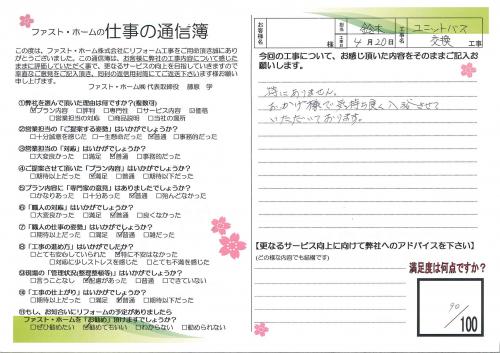 ファスト・ホームの仕事の通信簿
この度は、ファスト・ホーム株式会社にリフォーム工事をご用命頂き誠にあり
がとうございました。この通信簿は、お客様に弊社の工事内容について感じた
ままに評価していただく事で、更なるサービスの向上を目指していきますので
率直なご意見をご記入頂き、同封の返信用封筒にてご返送下さいます様お願い
申し上げます。
ファスト・ホーム㈱ 代表取締役 藤原 学
①弊社を選んで頂いた理由は何ですか?(複数可)
☑プラン内容 □評判 □専門性 □サービス内容 ☑価格
□営業担当の対応 □商品説明 □当社の雰囲気
②営業担当の「ご提案する姿勢」はいかがでしょうか?
□十分誠意を感じた □一生懸命だった ☑普通 □事務的だった
③営業担当の「対応」はいかがでしょうか?
□大変良かった ☑満足 □普通 □事務的だった
④ご提案させて頂いた「プラン内容」はいかがでしたか?
□期待以上だった ☑満足 □普通 □期待以下だった
⑤プラン内容に「専門家の意見」はありましたでしょうか?
□かなりあった □十分あった ☑普通 □殆んどなかった
⑥「職人の対応」はいかがでしょうか?
□大変良かった ☑満足 □普通 □良くなかった
⑦「職人の仕事の姿勢」はいかがでしょうか?
□期待以上だった ☑満足 □普通 □雑だった
⑧「工事の進め方」はいかがでしたか?
□とても安心していられた ☑特に不安はなかった
□対応に少しストレスを感じた □とても不満を感じた
⑨現場の「管理状況(整理整頓等)」はいかがでしょうか?
□言うことなし ☑配慮があった □普通 □できていない
⑩「工事の仕上がり」はいかがでしょうか?
□期待以上だった ☑満足 □普通 □期待以下だった
⑪もし、お知合いにリフォームの予定がありましたら
ファスト・ホームを「お勧め」頂けますでしょうか?
□ぜひ勧めたい ☑勧めてもいい □わからない □勧められない
お客様名
鈴木
ユニットバス
4月20日
交換 工事
今回の工事について、お感じ頂いた内容をそのままご記入お
願いします。
特にありません。
おかげ様で気持ち良く入浴させて
いただいております。
【更なるサービス向上に向けて弊社へのアドバイスを下さい】
(どの様な内容でも結構です)
満足度は何点ですか?
90
/100